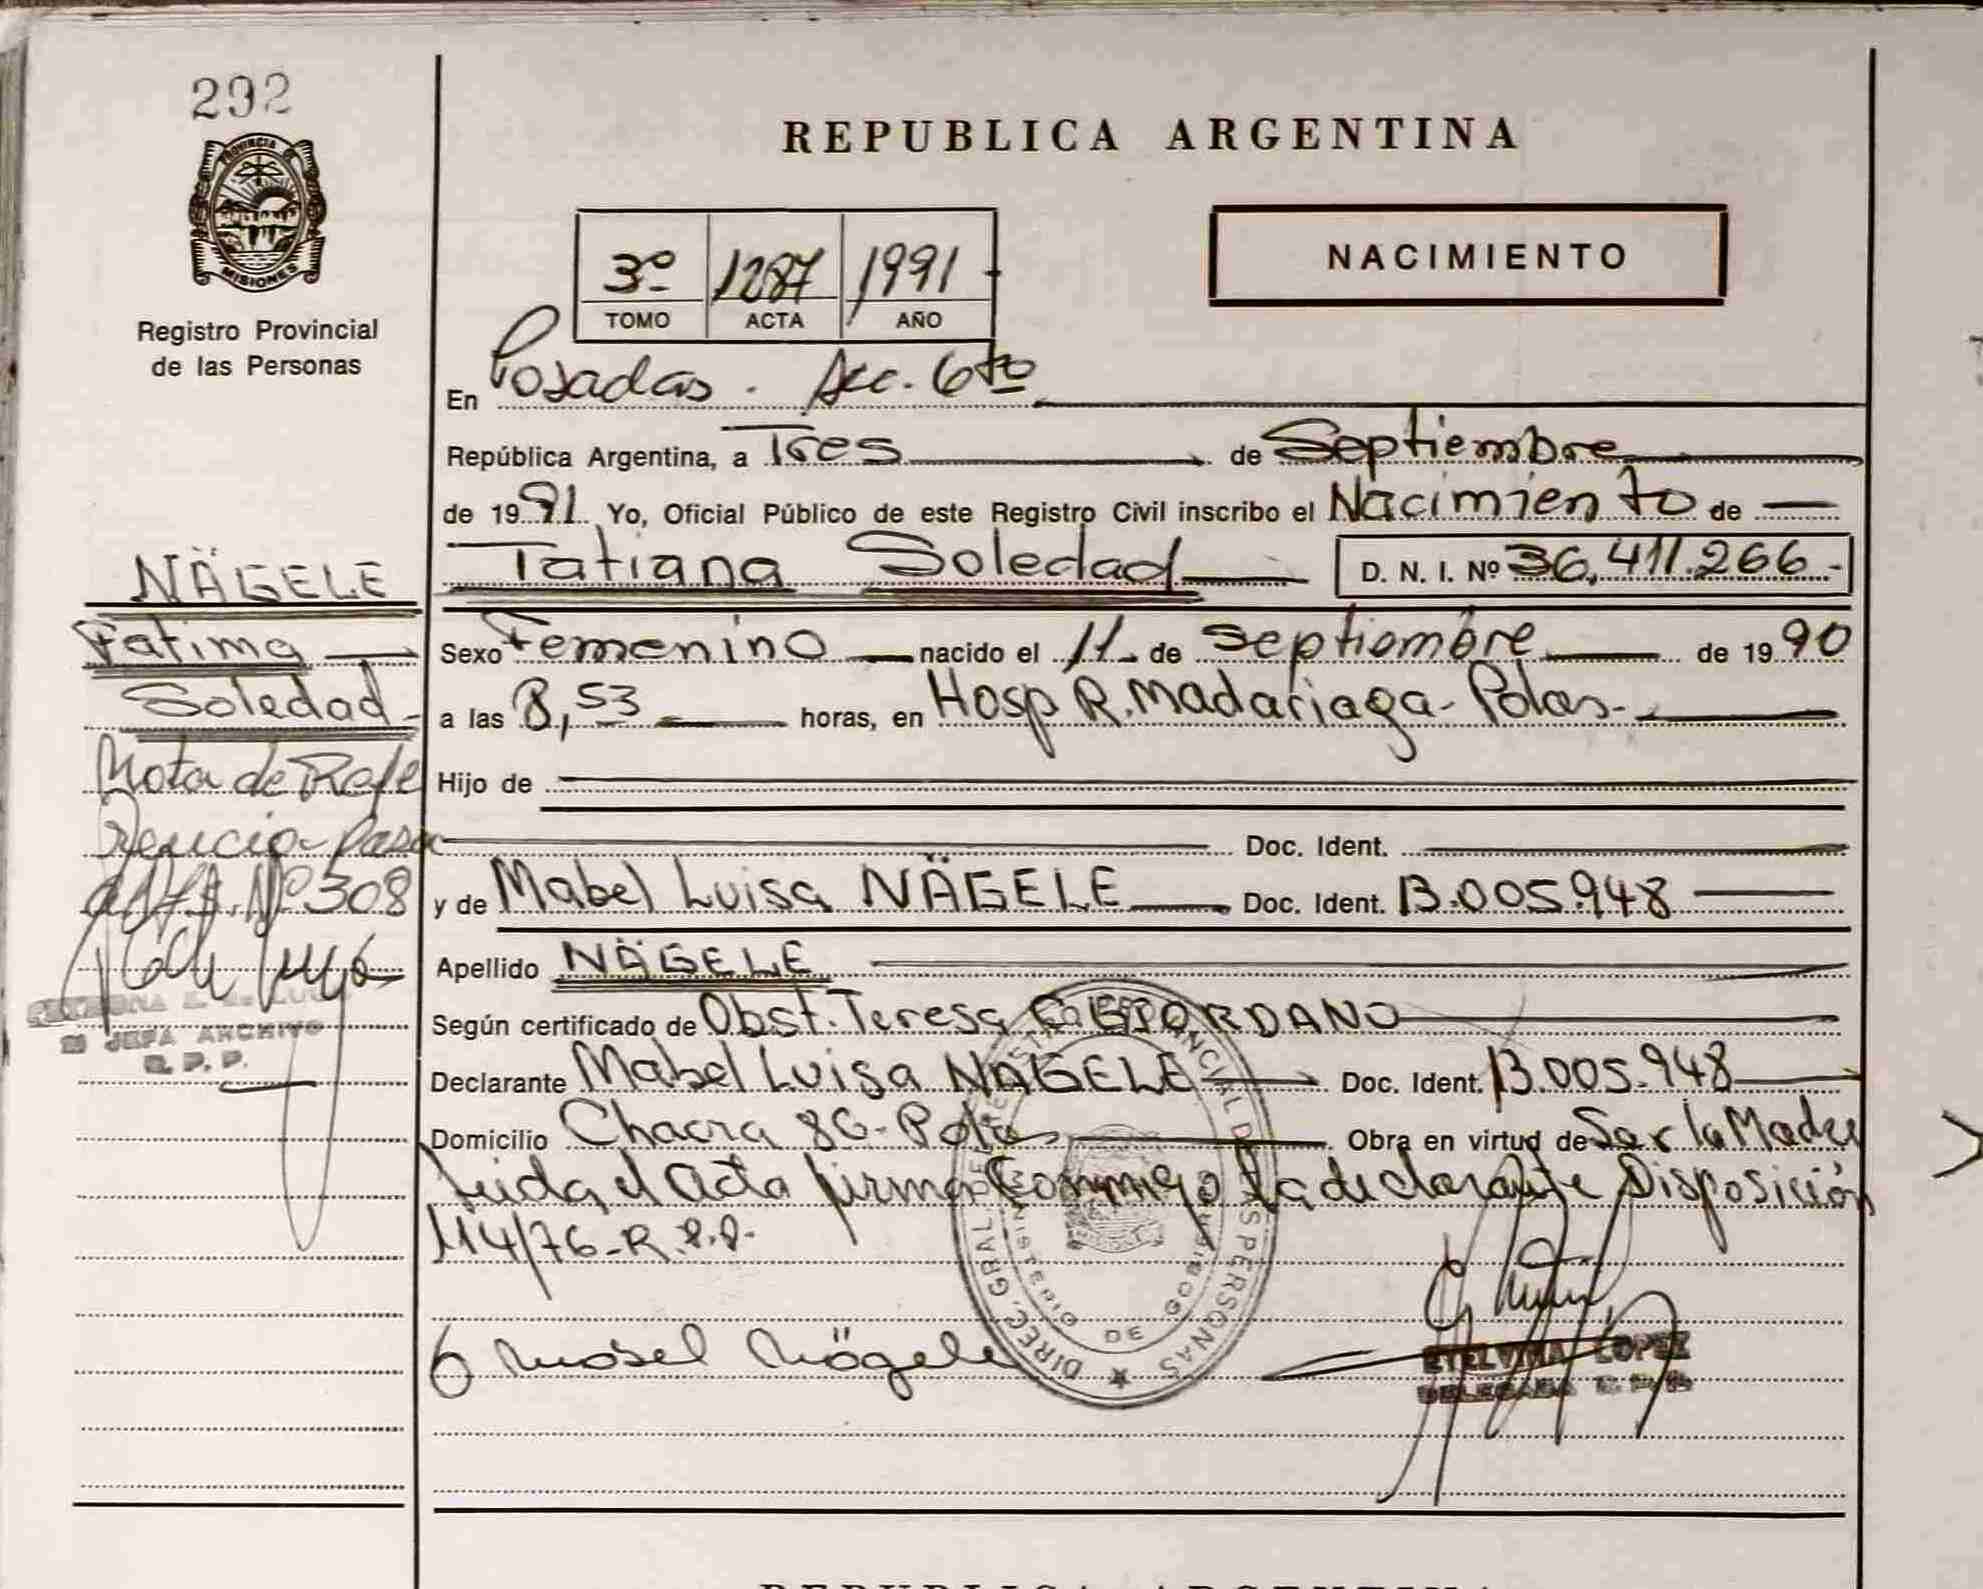 292
PROVINCIA DE
MISIONES
Registro Provincial
de las Personas
REPUBLICA ARGENTINA
NACIMIENTO
3º 1287 1991
TOMO ACTA AÑO
En Posadas. Sec. 6to
República Argentina, a Tres de Septiembre
de 1991 Yo, Oficial Público de este Registro Civil inscribo el Nacimiento de
Tatiana Soledad D. N. I. Nº 36.411.266.-
Sexo Femenino nacido el 11 de Septiembre de 1990
a las 8,53 horas, en Hosp R. Madariaga- Pdas-
Hijo de
Doc. Ident.
y de Mabel Luisa NÄGELE Doc. Ident. 13.005.948
Apellido NÄGELE
Según certificado de Obst. Teresa GIORDANO
Declarante Mabel Luisa NÄGELE Doc. Ident. 13.005.948
Domicilio Chacra 86- Pdas Obra en virtud de Ser la Madre
Leida el acta firma conmigo la declarante Disposición
114/76-R.P.P.
Mabel Nägele
ETELVINA LOPEZ
DELEGADA R. P. P.
DIREC. GRAL. PROVINCIAL DE LAS PERSONAS
NÄGELE
Fatima
Soledad
Nota de Refe
rencia- Pasa
Nº 308
JEFA ARCHIVO
R. P. P.
REPUBLICA ARGENTINA